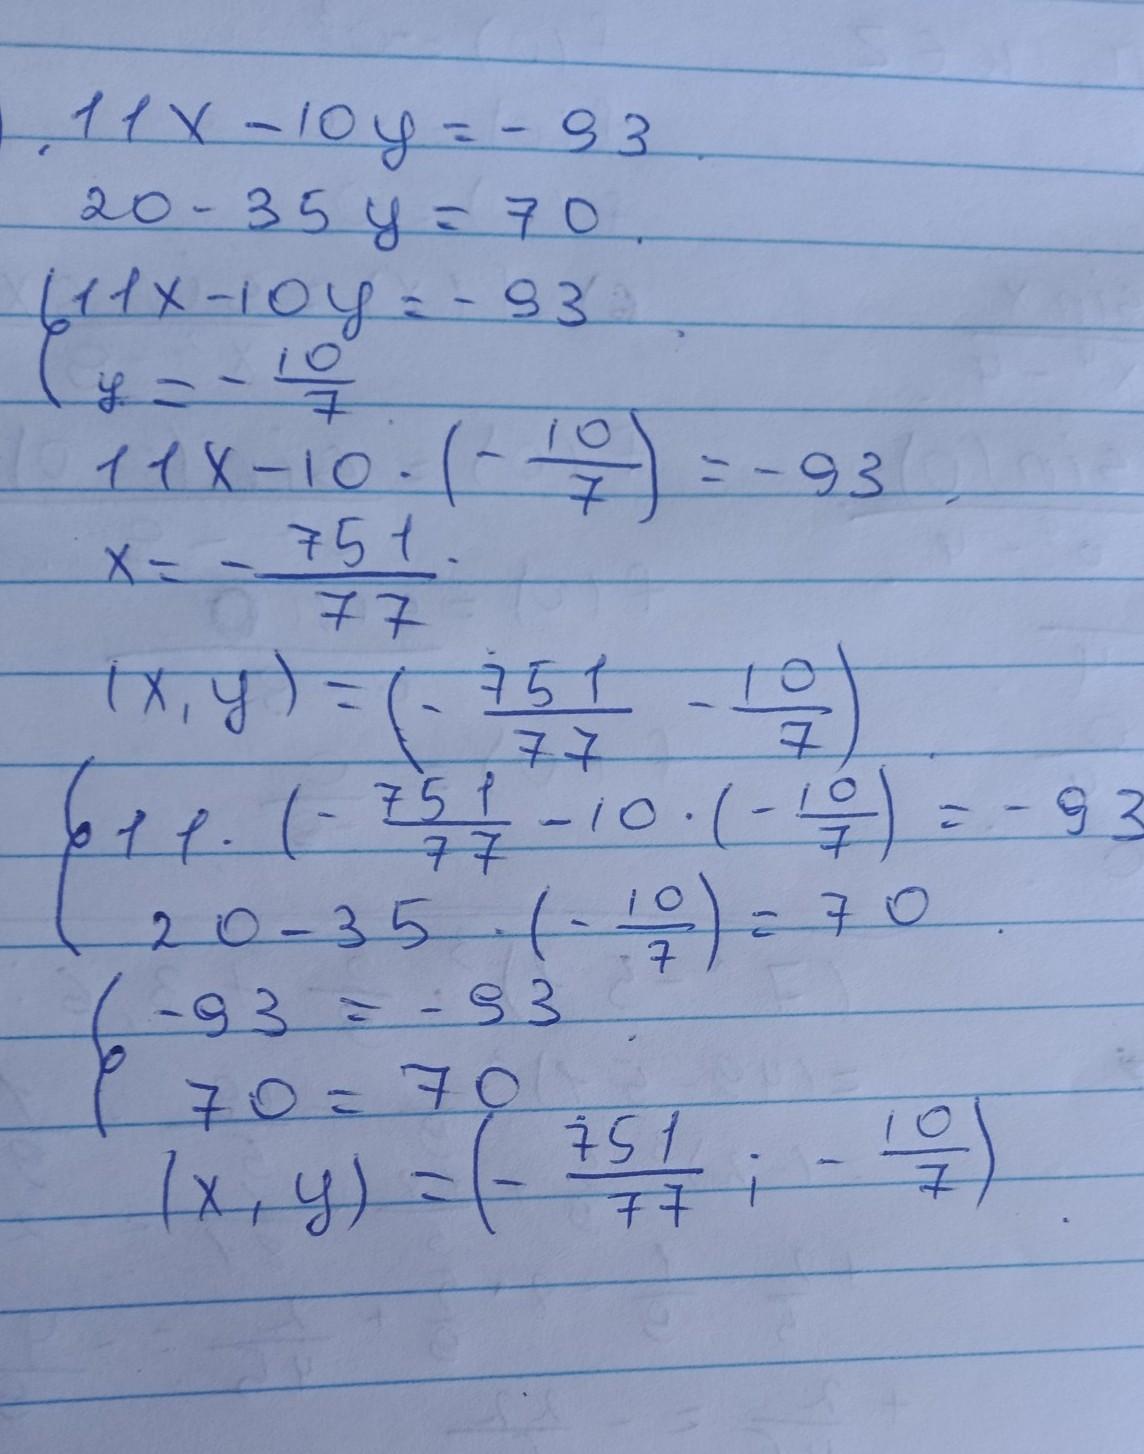 11x - 10y = - 93
20 - 35y = 70
{11x - 10y = - 93
y = - 10/7
11x - 10 · (- 10/7) = - 93
x = - 751/77
(x, y) = (- 751/77 - 10/7)
{11 · (- 751/77 - 10 · (- 10/7) = - 93
20 - 35 · (- 10/7) = 70
{- 93 = - 93
70 = 70
(x, y) = (- 751/77 ; - 10/7)